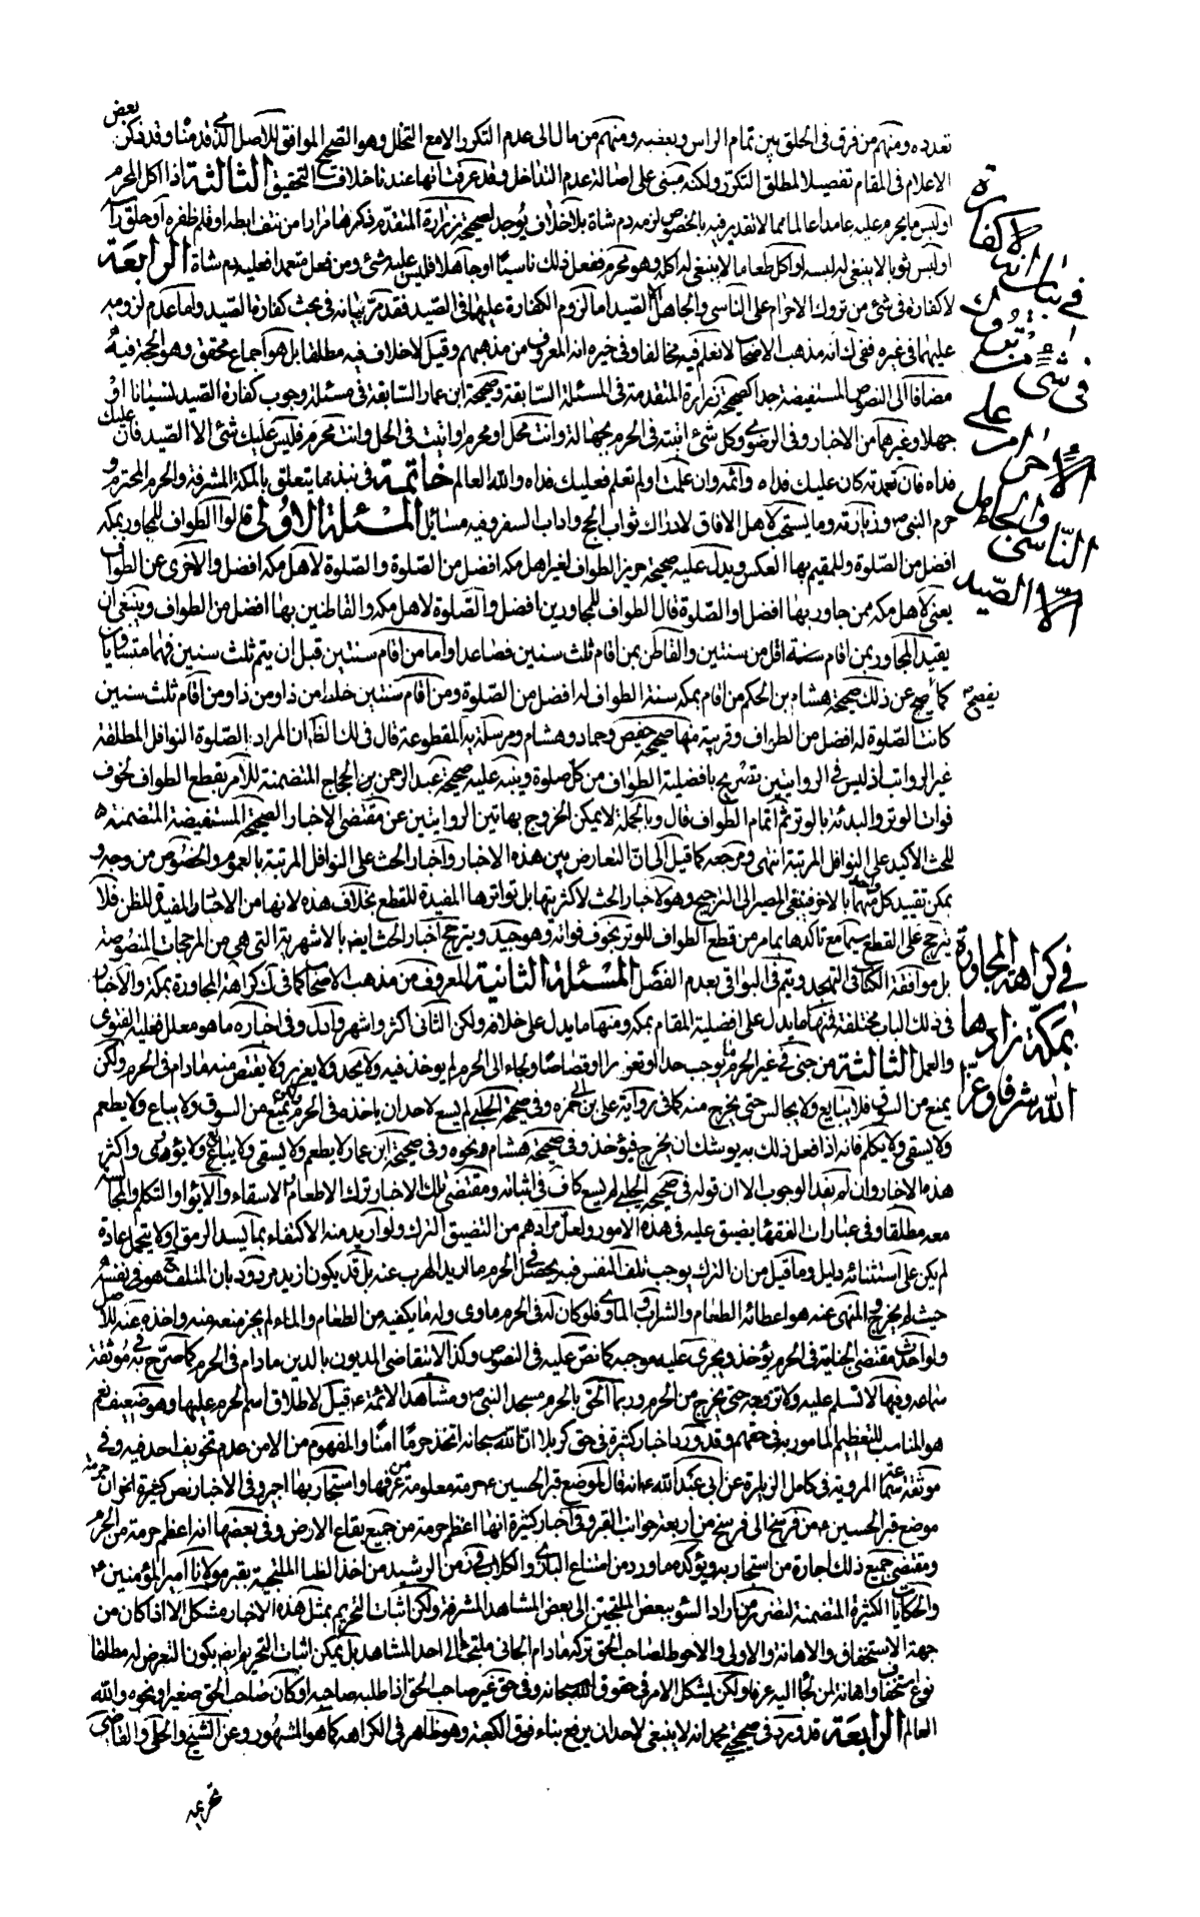 تعدده ومنهم من فرق فى الحلق بين تمام الراس وبعضه ومنهم من مال الى عدم التكرر الا مع التخلل وهو الصحيح الموافق للاصل الذى قدمنا وقد ذكر بعض
الاعلام فى المقام تفصيلا لمطلق التكرر ولكنه مبنى على اصالة عدم التداخل وقد عرفت انها عندنا خلاف التحقيق الثالثة اذا اكل المحرم
او لبس ما يحرم عليه عامدا عالما مما لا تقدير فيه بالخصوص لزمه دم شاة بلا خلاف يوجد لصحيحة زرارة المتقدم ذكرها مرارا من نتف ابطه او قلم ظفره او حلق راسه
او لبس ثوبا لا ينبغى له لبسه او اكل طعاما لا ينبغى له اكله وهو محرم ففعل ذلك ناسيا او جاهلا فليس عليه شئ ومن فعل متعمدا فعليه دم شاة الرابعة
لا كفارة فى شئ من تروك الاحرام على الناسى والجاهل الا الصيد اما لزوم الكفارة عليهما فى الصيد فقد مر بيانه فى بحث كفارة الصيد واما عدم لزومه
عليهما فى غيره ففى ك انه مذهب الاصحاب لا نعلم فيه مخالفا وفى خيره انه المعروف من مذهبهم وقيل لا خلاف فيه مطلقا بل هو اجماع محقق وهو الحجة فيه
مضافا الى النصوص المستفيضة جدا كصحيحة زرارة المتقدمة فى المسئلة السابقة وصحيحة ابن عمار السابقة فى مسئلة وجوب كفارة الصيد نسيانا او
جهلا وغيرهما من الاخبار وفى الرضوى وكل شئ اتيته فى الحرم بجهالة وانت محل او محرم او اتيت فى الحل وانت محرم فليس عليك شئ الا الصيد فان عليك
فداه فان تعمدته كان عليك فداه واثمه وان علمت او لم تعلم فعليك فداه والله العالم خاتمة فى نبذ مما يتعلق بالمكة المشرفة والحرم المحترم و
حرم النبى ص وزيارته وما يستحب لاهل الافاق لادراك ثواب الحج واداب السفر وفيه مسائل المسئلة الاولى قالوا الطواف للمجاور بمكة
افضل من الصلوة وللمقيم بها العكس ويدل عليه صحيحة حريز الطواف لغير اهل مكة افضل من الصلوة والصلوة لاهل مكة افضل والاخرى عن الطواف
يعنى لاهل مكة ممن جاور بها افضل او الصلوة قال الطواف للمجاورين افضل والصلوة لاهل مكة والقاطنين بها افضل من الطواف وينبغى ان
يقيد المجاور بمن اقام سنة اقل من سنتين والقاطن بمن اقام ثلث سنين فصاعدا واما من اقام سنتين قبل ان يتم ثلث سنين فهما متساويان
كما يفصح عن ذلك صحيحة هشام بن الحكم من اقام بمكة سنة الطواف له افضل من الصلوة ومن اقام سنتين خلط من ذا ومن ذا ومن اقام ثلث سنين
كانت الصلوة له افضل من الطواف وقريبة منها صحيحة حفص وحماد وهشام ومرسلة يه المقطوعة قال فى لك الظ ان المراد بالصلوة النوافل المطلقة
غير الرواتب اذ ليس فى الروايتين تصريح بافضلية الطواف من كل صلوة وينبه عليه صحيحة عبد الرحمن بن الحجاج المتضمنة للامر بقطع الطواف لخوف
فوات الوتر والبدئة بالوتر ثم اتمام الطواف قال وبالجملة لا يمكن الخروج بهاتين الروايتين عن مقتضى الاخبار الصحيحة المستفيضة المتضمنة
للحث الاكيد على النوافل المرتبة انتهى ومرجعه كما قيل الى ان التعارض بين هذه الاخبار واخبار الحث على النوافل المرتبة بالعموم والخصوص من وجه و
يمكن تقييد كل منهما بالاخر فينبغى المصير الى الترجيح وهو لاخبار الحث لاكثريتها بل تواترها المفيدة للقطع بخلاف هذه لانها من الاخبار المفيدة للظن فلا
يترجح على القطع سيما مع تاكدها بما مر من قطع الطواف للوتر بخوف فواته وهو جيد ويترجح اخبار الحث ايضا بالاشهرية التى هى من المرجحات المنصوصة
بل موافقة الكتاب فى التهجد ويتم فى البواقى بعدم الفصل المسئلة الثانية المعروف من مذهب الاصحاب كما فى ك كراهة المجاورة بمكة والاخبار
فى ذلك الباب مختلفة فمنها ما يدل على افضلية المقام بمكة ومنها ما يدل على خلافه ولكن الثانى اكثر واشهر وادل وفى اخباره ما هو معلل فعليه الفتوى
والعمل الثالثة من جنى فى غير الحرم بما يوجب حدا او تعزيرا او قصاصا ولجاء الى الحرم لم يؤخذ فيه ولا يحد ولا يعزر ولا يقتص منه ما دام فى الحرم ولكن
يمنع من السوق فلا يبايع ولا يجالس حتى يخرج منه كما فى رواية على بن ابى حمزة وفى صحيحة الحلبى لم يسع لاحد ان ياخذه فى الحرم ولكن يمنع من السوق ولا يبايع ولا يطعم
ولا يسقى ولا يكلم فانه اذا فعل ذلك به يوشك ان يخرج فيؤخذ وفى صحيحة هشام ونحوه وفى صحيحة ابن عمار لا يطعم ولا يسقى ولا يبايع ولا يؤوى واكثر
هذه الاخبار وان لم يفد الوجوب الا ان قوله فى صحيحة الحلبى لم يسع كاف فى اثباته ومقتضى تلك الاخبار ترك الاطعام والاسقاء والايواء والتكلم والمجالسة
معه مطلقا وفى عبارات الفقهاء يضيق عليه فى هذه الامور ولعل مرادهم من التضييق الترك ولو اريد منه الاكتفاء بما يسد الرمق او لا يتحمل عادة
لم يكن على استثنائه دليل وما قيل من ان الترك يوجب تلف النفس فيه
حيث لم يخرج والمنهى عنه هو اعطائه الطعام والشراب والماوى فلو كان له فى الحرم ماوى وله ما يكفيه من الطعام والماء لم يجز منعه منه واخذه عنه للاصل
ولو احدث مقتضى الجناية فى الحرم يؤخذ ويجرى عليه موجبه كما نص عليه فى النصوص وكذا لا يتقاضى المديون بالدين ما دام فى الحرم كما صرح به فى موثقة
سماعة وفيها لا تسلم عليه ولا تروعه حتى يخرج من الحرم وربما الحق بالحرم مسجد النبى ص ومشاهد الائمة ع قيل لاطلاق اسم الحرم عليها وهو ضعيف نعم
هو المناسب للتعظيم المامور به فى حقهم وقد ورد اخبار كثيرة فى حق كربلا ان الله سبحانه اتخذ حرما امنا والمفهوم من الامن عدم تخويف احد فيه وفى
موثقة المروية فى كامل الزيارة عن ابى عبد الله ع انه قال لموضع قبر الحسين ع حرمة معلومة من عرفها واستجار بها اجير وفى الاخبار نص كثيرة اخر ان حرمة
موضع قبر الحسين ع من فرسخ الى فرسخ من اربعة جوانب القبر وفى اخبار كثيرة انها اعظم حرمة من جميع بقاع الارض وفى بعضها انه اعظم حرمة من الحرم
ومقتضى جميع ذلك اجارة من استجار به ويؤكده ما ورد من امتناع البازى والكلاب فى زمن الرشيد من اخذ الظبا الملتجية بقبر مولانا امير المؤمنين ع
والحكايات الكثيرة المتضمنة لتضرر من اراد السوء ببعض الملتجين الى بعض المشاهد المشرفة ولكن اثبات التحريم بمثل هذه الاخبار مشكل الا اذا كان من
جهة الاستخفاف والاهانة والاولى والاحوط لصاحب الحق تركه ما دام الجانى ملتجئا الى احد المشاهد بل يمكن اثبات التحريم ايضا بكون التعرض له مطلقا
نوع استخفاف واهانة لمن لجأ اليه عرفا ولكن يشكل الامر فى حقوق الله سبحانه وفى حق غير صاحب الحق اذا طلبه صاحبه او كان صاحب الحق صغيرا ونحوه والله
العالم الرابعة قد ورد فى صحيحة محمد انه لا ينبغى لاحد ان يرفع بناء فوق الكعبة وهو ظاهر فى الكراهة كما هو المشهور وعن الشيخ والحلى والقاضى
تحريمه
فى بيان انه لا كفارة
فى شئ من تروك
الاحرام على
الناسى والجاهل
الا الصيد
يفصح
فى كراهة المجاورة
بمكة زادها
الله شرفا وعزا